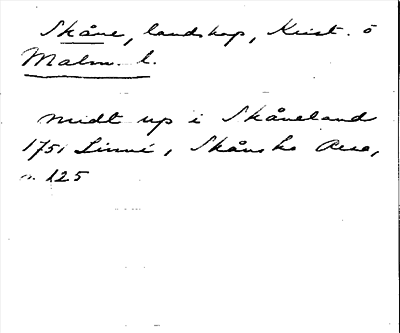 Skåne, landskap, Krist. o
Malm. l.
midt up i Skåneland
1751 Linné, Skånska Resa,
s. 125